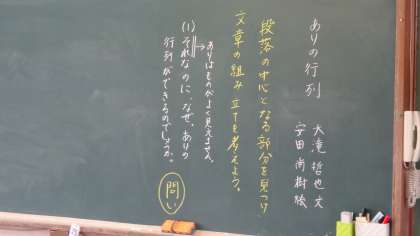 ありの行列
大滝 哲也 文
安田 尚樹 絵
段落の中心となる部分を見つけ
文章の組み立てを考えよう。
ありはものがよく見えません。
(1) それなのに、なぜ、ありの
行列ができるのでしょうか。
問い